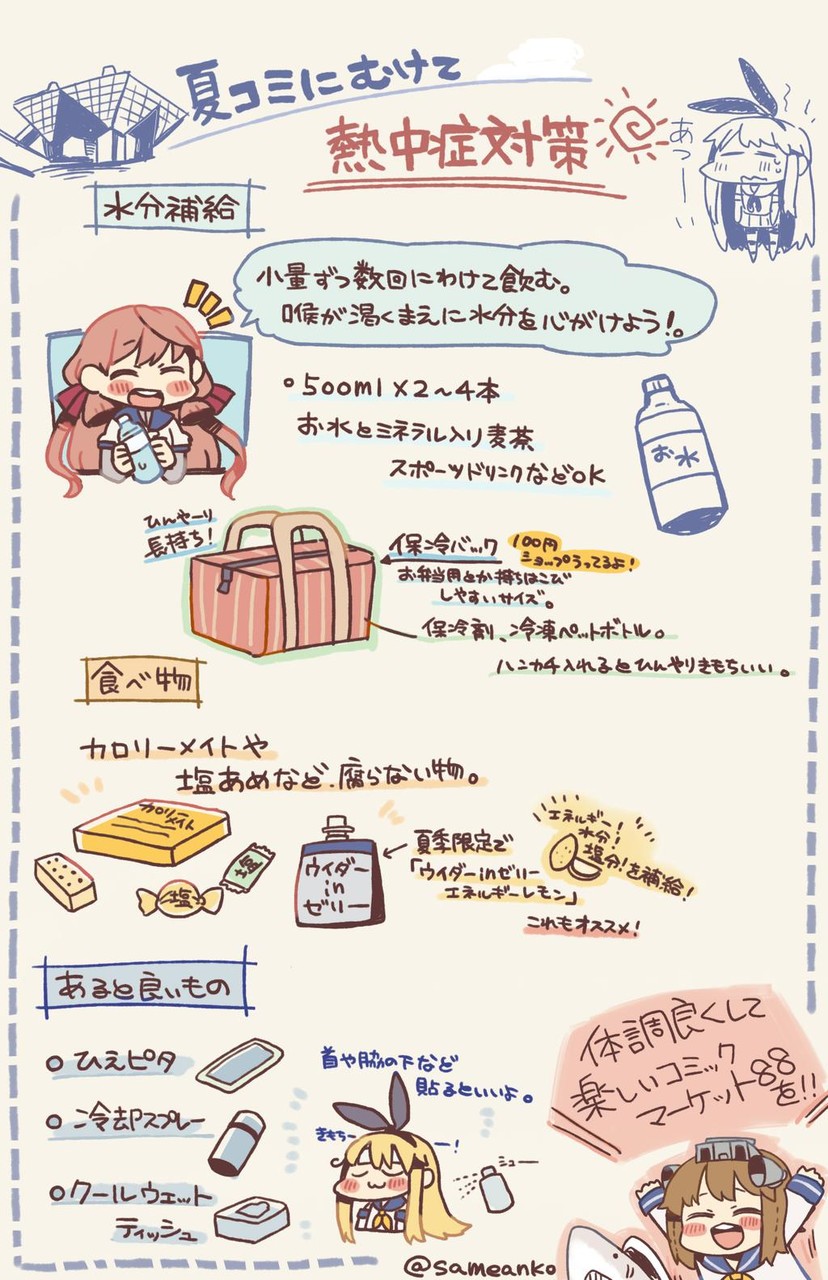 夏コミにむけて
熱中症対策
あつーい
水分補給
小量ずつ数回にわけて飲む。
喉が渇くまえに水分を心がけよう!。
500ml×2〜4本
お水とミネラル入り麦茶
スポーツドリンクなどOK
お水
ひんやーり
長持ち!
保冷バック
100円
ショップうってるよ!
お弁当用とか持ちはこび
しやすいサイズ。
保冷剤、冷凍ペットボトル。
ハンカチ入れるとひんやりきもちいい。
食べ物
カロリーメイトや
塩あめなど、腐らない物。
カロリー
メイト
塩
塩
ウイダー
in
ゼリー
夏季限定で
「ウイダーinゼリー
エネルギーレモン」
エネルギー!
水分!
塩分!を補給!
これもオススメ!
あると良いもの
ひえピタ
冷却スプレー
クールウェット
ティッシュ
首や脇の下など
貼るといいよ。
きもちー
ー!
シュー
体調良くして
楽しいコミック
マーケット88
を!!
@sameanko